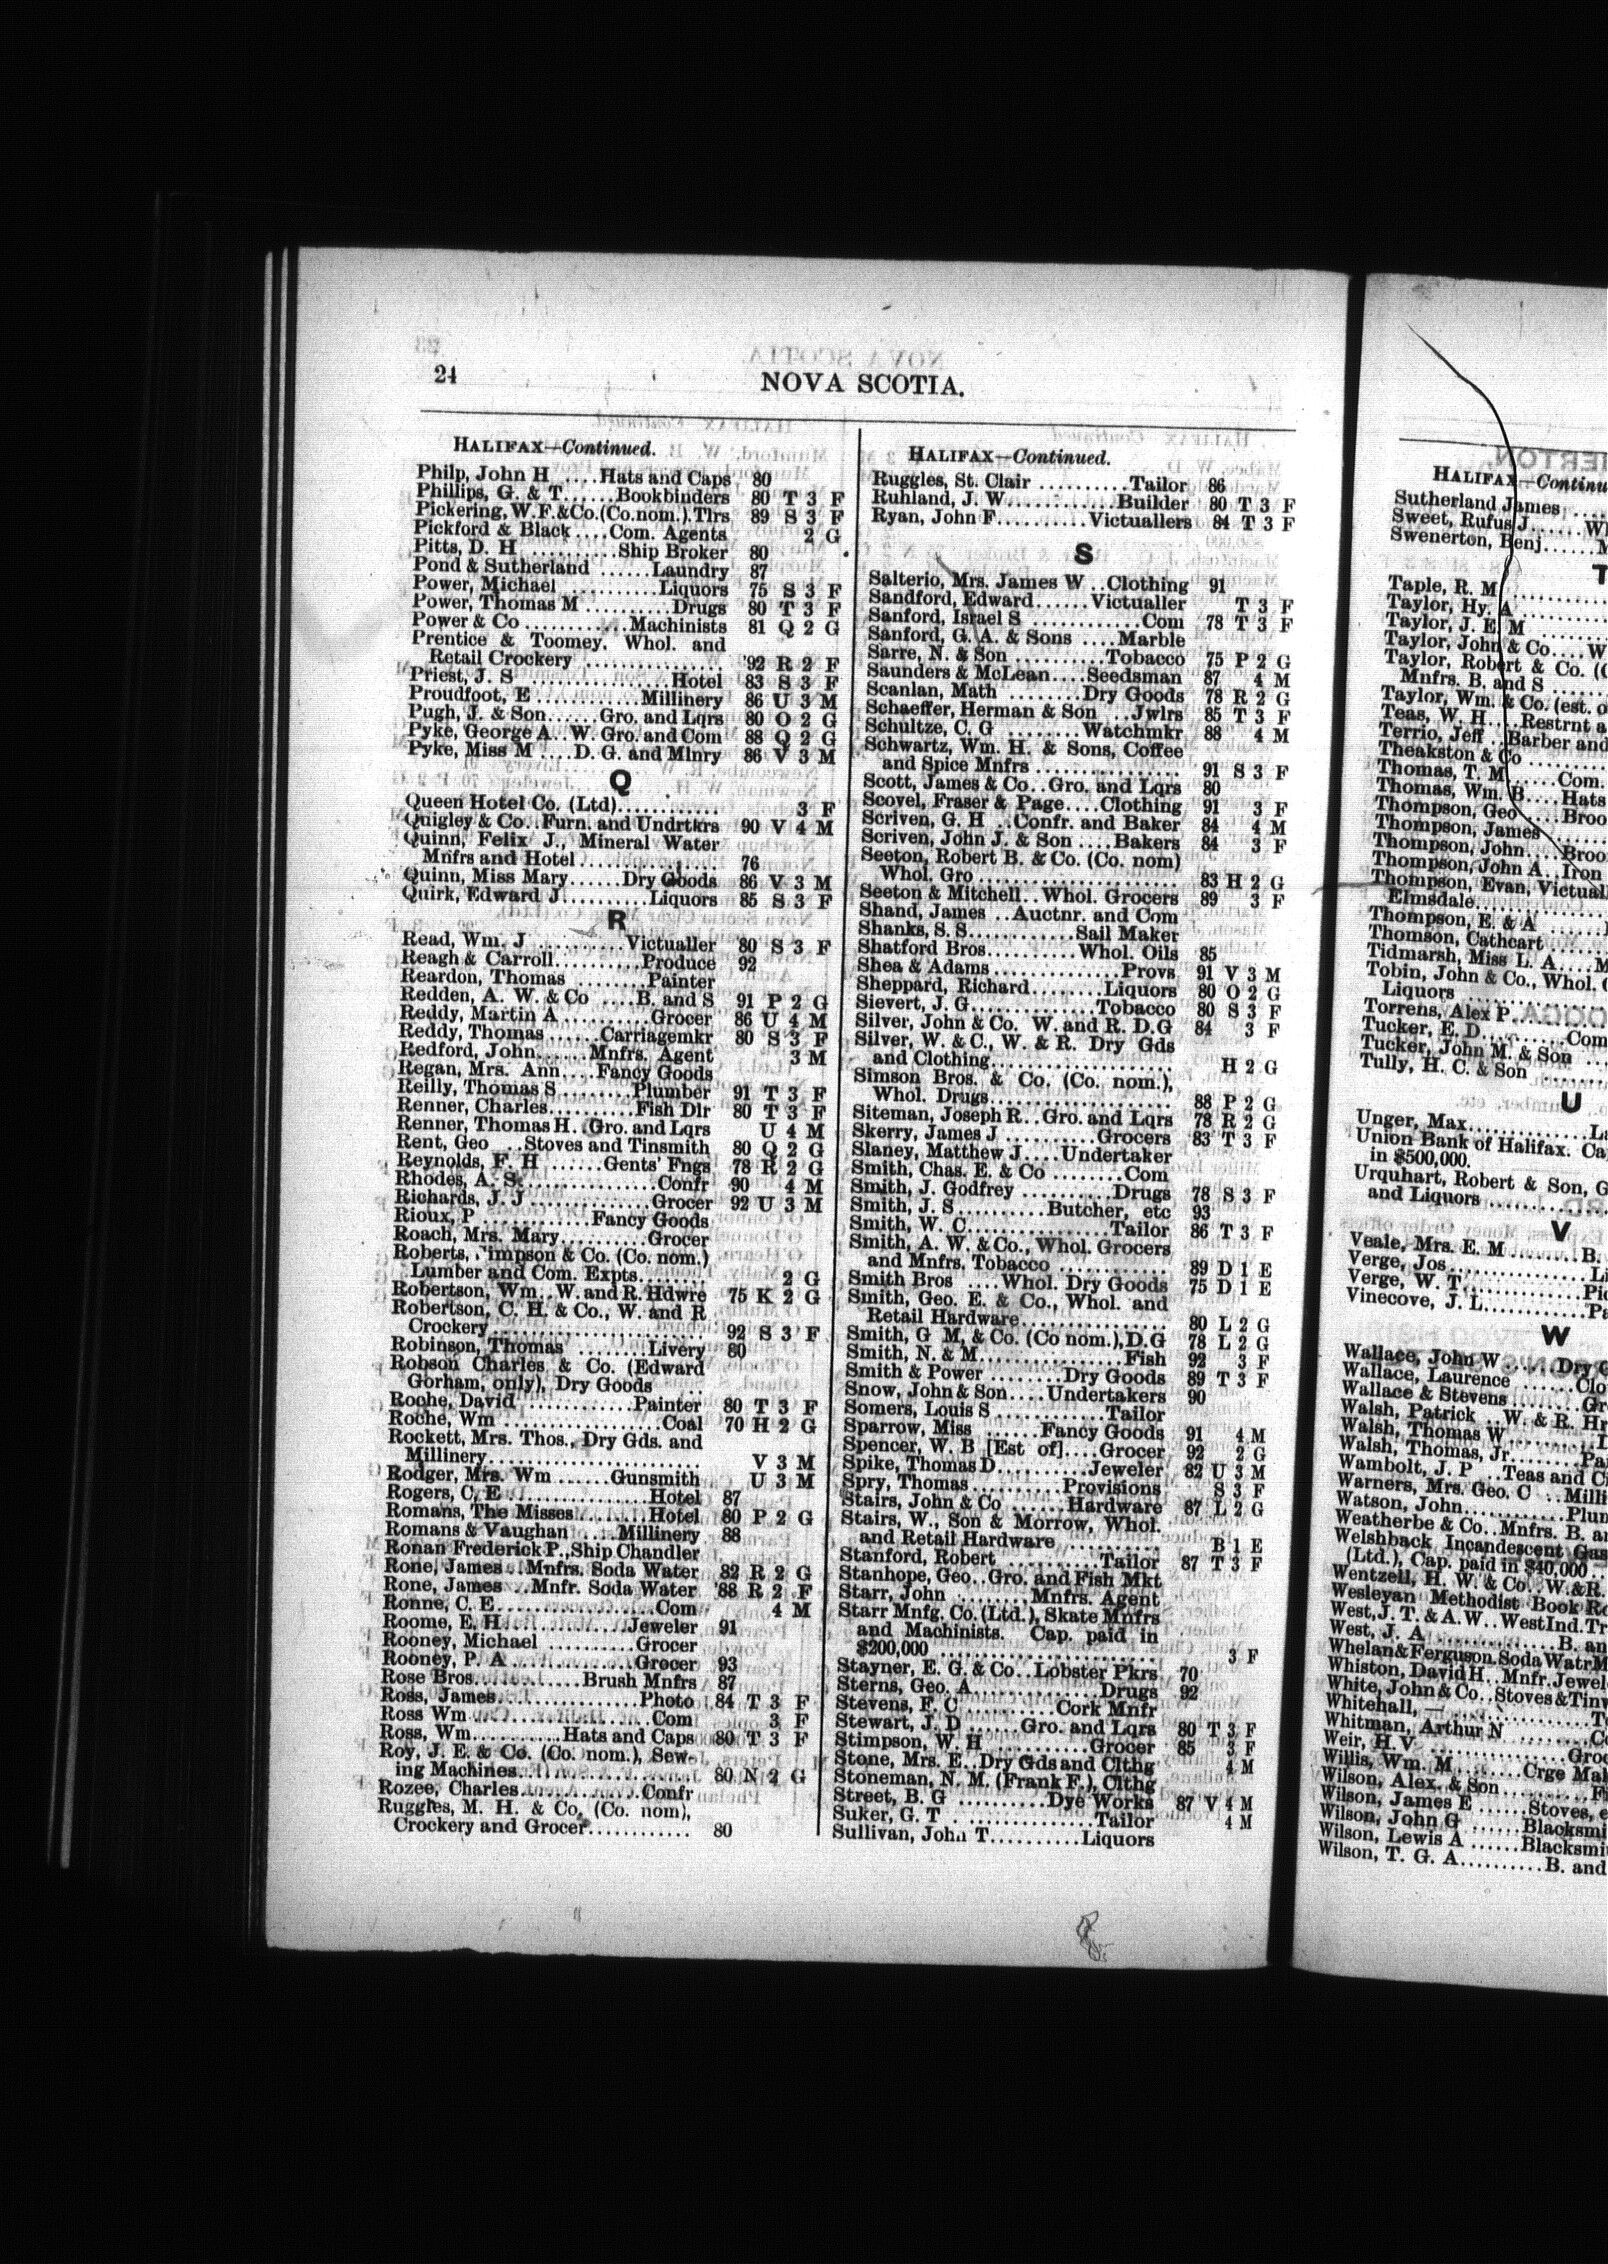 24
NOVA SCOTIA.
HALIFAX—Continued.
Philp, John H.....Hats and Caps 80
Phillips, G. & T......Bookbinders 80 T 3 F
Pickering, W.F.&Co.(Co.nom.).Tlrs 89 S 3 F
Pickford & Black....Com. Agents 2 G
Pitts, D. H..........Ship Broker 80
Pond & Sutherland......Laundry 87
Power, Michael..........Liquors 75 S 3 F
Power, Thomas M..........Drugs 80 T 3 F
Power & Co..........Machinists 81 Q 2 G
Prentice & Toomey. Whol. and
Retail Crockery.............. '92 R 2 F
Priest, J. S................Hotel 83 S 3 F
Proudfoot, E..........Millinery 86 U 3 M
Pugh, J. & Son......Gro. and Lqrs 80 O 2 G
Pyke, George A..W. Gro. and Com 88 Q 2 G
Pyke, Miss M....D. G. and Mlnry 86 V 3 M
Q
Queen Hotel Co. (Ltd)............ 3 F
Quigley & Co..Furn. and Undrtkrs 90 V 4 M
Quinn, Felix J., Mineral Water
Mnfrs and Hotel.............. 76
Quinn, Miss Mary......Dry Goods 86 V 3 M
Quirk, Edward J.........Liquors 85 S 3 F
R
Read, Wm. J..........Victualler 80 S 3 F
Reagh & Carroll..........Produce 92
Reardon, Thomas........Painter
Redden, A. W. & Co....B. and S 91 P 2 G
Reddy, Martin A..........Grocer 86 U 4 M
Reddy, Thomas......Carriagemkr 80 S 3 F
Redford, John......Mnfrs. Agent 3 M
Regan, Mrs. Ann....Fancy Goods
Reilly, Thomas S........Plumber 91 T 3 F
Renner, Charles..........Fish Dlr 80 T 3 F
Renner, Thomas H..Gro. and Lqrs U 4 M
Rent, Geo...Stoves and Tinsmith 80 Q 2 G
Reynolds, F H......Gents' Fngs 78 R 2 G
Rhodes, A. S..............Confr 90 4 M
Richards, J. J..............Grocer 92 U 3 M
Rioux, P............Fancy Goods
Roach, Mrs. Mary..........Grocer
Roberts, Simpson & Co. (Co. nom.)
Lumber and Com. Expts........ 2 G
Robertson, Wm..W. and R. Hdwre 75 K 2 G
Robertson, C. H. & Co., W. and R
Crockery...................... 92 S 3 F
Robinson, Thomas........Livery 80
Robson Charles & Co. (Edward
Gorham, only), Dry Goods....
Roche, David............Painter 80 T 3 F
Roche, Wm..................Coal 70 H 2 G
Rockett, Mrs. Thos., Dry Gds. and
Millinery...................... V 3 M
Rodger, Mrs. Wm......Gunsmith U 3 M
Rogers, C. E................Hotel 87
Romans, The Misses........Hotel 80 P 2 G
Romans & Vaughan....Millinery 88
Ronan Frederick P.,Ship Chandler
Rone, James...Mnfrs. Soda Water 82 R 2 G
Rone, James...Mnfr. Soda Water '88 R 2 F
Ronne, C. E..................Com 4 M
Roome, E. H..............Jeweler 91
Rooney, Michael..........Grocer
Rooney, P. A..............Grocer 93
Rose Bros............Brush Mnfrs 87
Ross, James................Photo 84 T 3 F
Ross Wm....................Com 3 F
Ross, Wm..........Hats and Caps 80 T 3 F
Roy, J. E. & Co. (Co. nom.), Sew-
ing Machines.................. 80 N 2 G
Rozee, Charles............Confr
Ruggles, M. H. & Co. (Co. nom),
Crockery and Grocer............ 80
HALIFAX—Continued.
Ruggles, St. Clair..........Tailor 86
Ruhland, J. W............Builder 80 T 3 F
Ryan, John F..........Victuallers 84 T 3 F
S
Salterio, Mrs. James W..Clothing 91
Sandford, Edward......Victualler T 3 F
Sanford, Israel S............Com 78 T 3 F
Sanford, G. A. & Sons....Marble
Sarre, N. & Son..........Tobacco 75 P 2 G
Saunders & McLean....Seedsman 87 4 M
Scanlan, Math........Dry Goods 78 R 2 G
Schaeffer, Herman & Son...Jwlrs 85 T 3 F
Schultze, C. G........Watchmkr 88 4 M
Schwartz, Wm. H. & Sons, Coffee
and Spice Mnfrs.............. 91 S 3 F
Scott, James & Co..Gro. and Lqrs 80
Scovel, Fraser & Page....Clothing 91 3 F
Scriven, G. H...Confr. and Baker 84 4 M
Scriven, John J. & Son....Bakers 84 3 F
Seeton, Robert B. & Co. (Co. nom)
Whol. Gro...................... 83 H 2 G
Seeton & Mitchell..Whol. Grocers 89 3 F
Shand, James..Auctnr. and Com
Shanks, S. S............Sail Maker
Shatford Bros..........Whol. Oils 85
Shea & Adams..............Provs. 91 V 3 M
Sheppard, Richard........Liquors 80 O 2 G
Sievert, J. G..............Tobacco 80 S 3 F
Silver, John & Co. W. and R. D.G 84 3 F
Silver, W. & C., W. & R. Dry Gds
and Clothing.................. H 2 G
Simson Bros. & Co. (Co. nom.),
Whol. Drugs.................... 88 P 2 G
Siteman, Joseph R..Gro. and Lqrs 78 R 2 G
Skerry, James J..........Grocers 83 T 3 F
Slaney, Matthew J....Undertaker
Smith, Chas. E. & Co........Com
Smith, J. Godfrey..........Drugs 78 S 3 F
Smith, J. S..........Butcher, etc 93
Smith, W. C................Tailor 86 T 3 F
Smith, A. W. & Co., Whol. Grocers
and Mnfrs. Tobacco............ 89 D 1 E
Smith Bros....Whol. Dry Goods 75 D 1 E
Smith, Geo. E. & Co., Whol. and
Retail Hardware................ 80 L 2 G
Smith, G M, & Co. (Co nom.),D.G 78 L 2 G
Smith, N. & M................Fish 92 3 F
Smith & Power........Dry Goods 89 T 3 F
Snow, John & Son....Undertakers 90
Somers, Louis S............Tailor
Sparrow, Miss......Fancy Goods 91 4 M
Spencer, W. B [Est of]....Grocer 92 2 G
Spike, Thomas D..........Jeweler 82 U 3 M
Spry, Thomas..........Provisions S 3 F
Stairs, John & Co......Hardware 87 L 2 G
Stairs, W., Son & Morrow, Whol.
and Retail Hardware.......... B 1 E
Stanford, Robert..........Tailor 87 T 3 F
Stanhope, Geo..Gro. and Fish Mkt
Starr, John........Mnfrs. Agent
Starr Mnfg. Co. (Ltd.), Skate Mnfrs
and Machinists. Cap. paid in
$200,000........................ 3 F
Stayner, E. G. & Co..Lobster Pkrs 70
Sterns, Geo. A..............Drugs 92
Stevens, F. C..........Cork Mnfr
Stewart, J. D......Gro. and Lqrs 80 T 3 F
Stimpson, W. H..........Grocer 85 3 F
Stone, Mrs. E..Dry Gds and Clthg 4 M
Stoneman, N. M. (Frank F.), Clthg
Street, B. G..........Dye Works 87 V 4 M
Suker, G. T..............Tailor 4 M
Sullivan, John T..........Liquors
HALIFAX—Continu
Sutherland James....
Sweet, Rufus J......W
Swenerton, Benj......M
T
Taple, R. M..............
Taylor, Hy. A............
Taylor, J. E. M........
Taylor, John & Co....W
Taylor, Robert & Co. (C
Mnfrs. B. and S........
Taylor, Wm. & Co. (est. o
Teas, W. H....Restrnt a
Terrio, Jeff..Barber and
Theakston & Co........
Thomas, T. M......Com.
Thomas, Wm. B....Hats
Thompson, Geo......Broo
Thompson, James......
Thompson, John....Broo
Thompson, John A...Iron
Thompson, Evan, Victuall
Elmsdale................
Thompson, E. & A......
Thomson, Cathcart......
Tidmarsh, Miss L. A....M
Tobin, John & Co., Whol. G
Liquors................
Torrens, Alex P..........
Tucker, E. D..........Com
Tucker, John M. & Son..
Tully, H. C. & Son........
U
Unger, Max............La
Union Bank of Halifax. Ca
in $500,000.
Urquhart, Robert & Son, G
and Liquors............
V
Veale, Mrs. E. M........B.
Verge, Jos..............Li
Verge, W. T............Pic
Vinecove, J. L..........Pa
W
Wallace, John W......Dry G
Wallace, Laurence......Clo
Wallace & Stevens......Gr
Walsh, Patrick..W. & R. Hr
Walsh, Thomas W........L
Walsh, Thomas, Jr......Pai
Wambolt, J. P...Teas and Ci
Warners, Mrs. Geo. C...Milli
Watson, John............Plum
Weatherbe & Co..Mnfrs. B. an
Welshback Incandescent Gas
(Ltd.), Cap. paid in $40,000..
Wentzell, H. W. & Co. W.&R.
Wesleyan Methodist Book Ro
West, J. T. & A.W..WestInd.Tr
West, J. A............B. an
Whelan&Ferguson.Soda WatrM
Whiston, David H..Mnfr.Jewel
White, John & Co..Stoves&Tinw
Whitehall, —..............T
Whitman, Arthur N......Co
Weir, H. V..............Groc
Willis, Wm. M......Crge Mak
Wilson, Alex. & Son......Fi
Wilson, James E......Stoves, e
Wilson, John G......Blacksmi
Wilson, Lewis A......Blacksmit
Wilson, T. G. A..........B. and